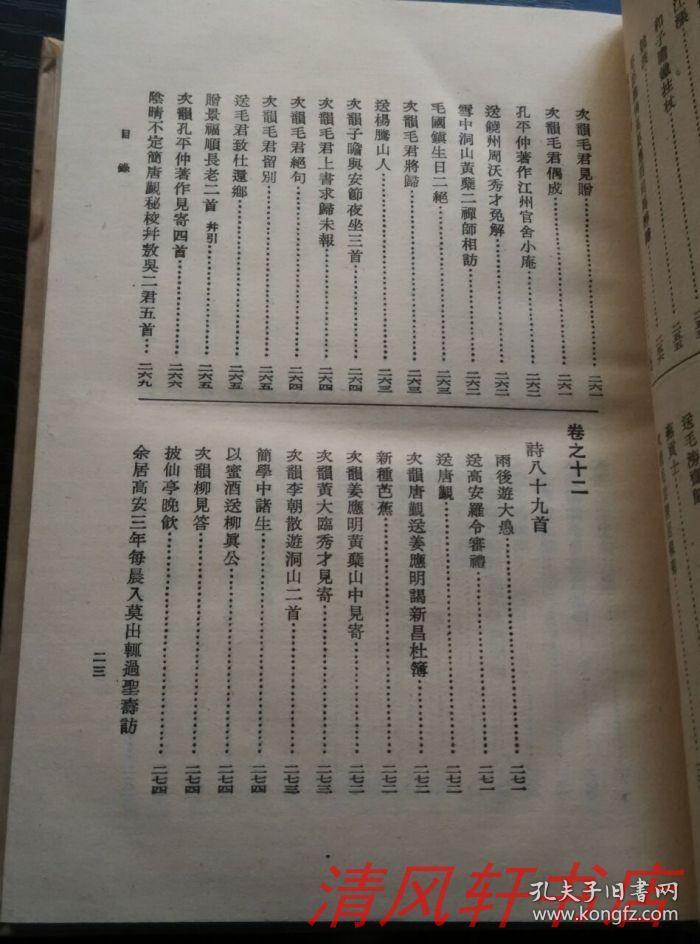 次韻毛君見贈……二六一
次韻毛君偶成……二六一
孔平仲著作江州官舍小庵……二六二
送饒州周沃秀才免解……二六二
雪中洞山黃蘗二禪師相訪……二六二
毛國鎮生日二絕……二六三
次韻毛君將歸……二六三
送楊騰山人……二六三
次韻子瞻與安節夜坐三首……二六四
次韻毛君上書求歸未報……二六四
次韻毛君絕句……二六四
次韻毛君留別……二六五
送毛君致仕還鄉……二六五
贈景福順長老二首 幷引……二六五
次韻孔平仲著作見寄四首……二六六
陰晴不定簡唐覯秘校幷敖吳二君五首……二六九
目錄
卷之十二
詩八十九首
雨後遊大愚……二七一
送高安羅令審禮……二七一
送唐覯……二七二
次韻唐覯送姜應明謁新昌杜簿……二七二
新種芭蕉……二七二
次韻姜應明黃蘗山中見寄……二七二
次韻黃大臨秀才見寄……二七三
次韻李朝散遊洞山二首……二七三
簡學中諸生……二七四
以蜜酒送柳眞公……二七四
次韻柳見答……二七四
披仙亭晚飲……二七四
余居高安三年每晨入莫出輒過聖壽訪
二三
清风轩书店
孔夫子旧书网
www.kongfz.com